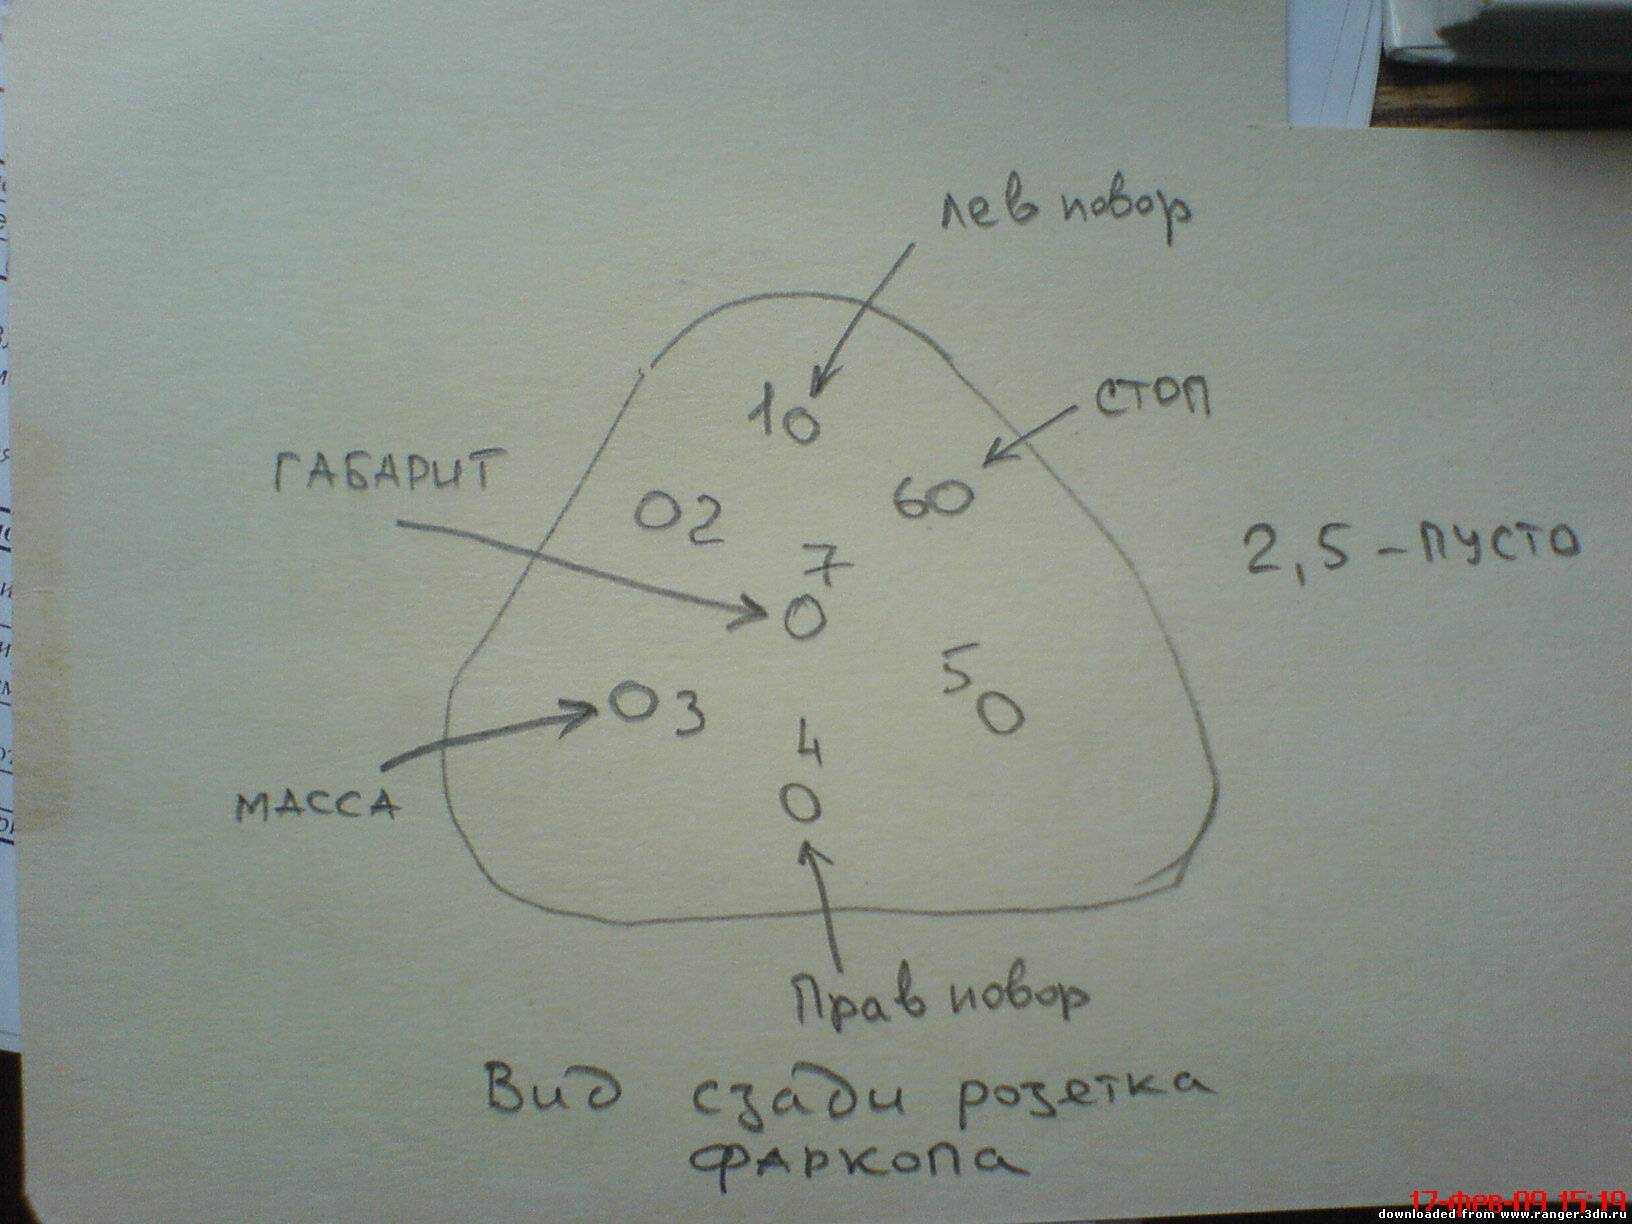 лев повор
1О
стоп
ГАБАРИТ
О2
6О
7
О
2,5 - пусто
5
О
О3
4
О
МАССА
Прав повор
Вид сзади розетка
фаркопа
17-фев-09 15:19
downloaded from www.ranger.3dn.ru